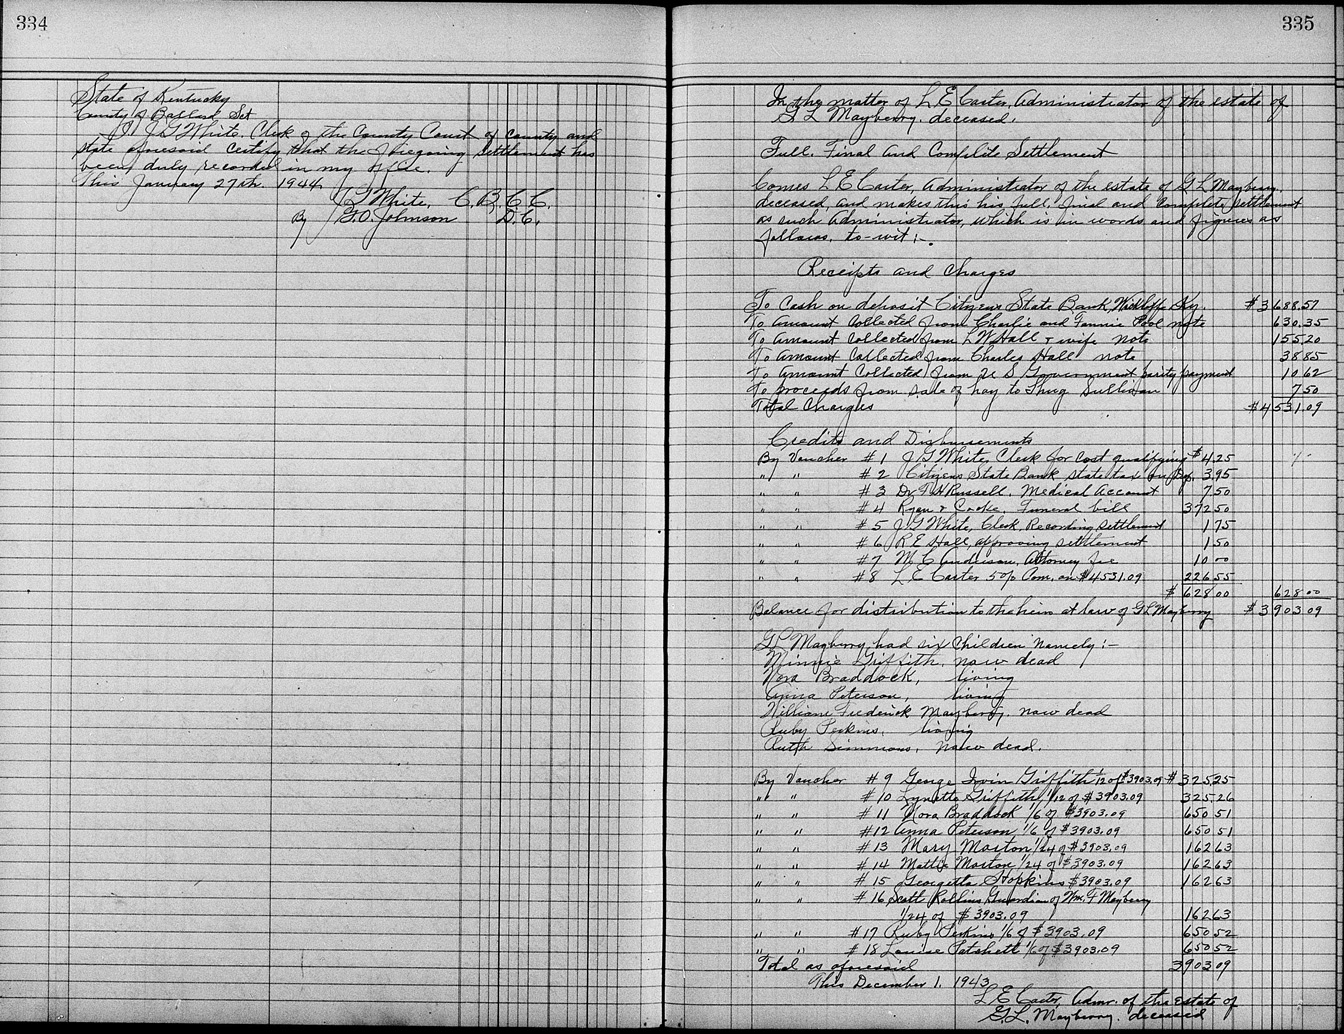 334
State of Kentucky
County of Ballard Sct
I J.G. White, Clerk of the County Court of county and
state aforesaid certify that the foregoing settlement has
been duly recorded in my office.
This January 27th. 1944.
J.G. White, C.B.C.C.
By G.O. Johnson D.C.
335
In the matter of L E Carter, Administrator of the estate of
G L Mayberry. deceased.
Full. Final and Complete Settlement
Comes L E Carter, Administrator of the estate of G L Mayberry,
deceased, and makes this his full, final and complete settlement
as such Administrator, which is in words and figures as
follows, to-wit:-
Receipts and Charges
To Cash on deposit Citizens State Bank, Wickliffe Ky. $3688.57
To Amount Collected from Charlie and Fannie Pool note 630.35
To Amount Collected from L W Hall & wife note 155.20
To Amount Collected from Charles Hall note 38.85
To Amount Collected from U S Government parity payment 10.62
To proceeds from sale of hay to Thug Sullivan 7.50
Total Charges $4531.09
Credits and Disbursements
By Voucher #1 J G White, Clerk for cost qualifying $4.25
" " #2 Citizens State Bank state tax on Dep. 3.95
" " #3 Dr T H Russell. Medical Account 7.50
" " #4 Ryan & Cooke, Funeral bill 372.50
" " #5 J G White, Clerk, Recording settlement 1.75
" " #6 R E Hall, approving settlement 1.50
" " #7 M C Anderson, Attorney fee 10.00
" " #8 L E Carter 5% Com. on $4531.09 226.55
$628.00 628.00
Balance for distribution to the heirs at law of G L Mayberry $3903.09
G L Mayberry had six Children namely:-
Minnie Griffith. now dead
Nora Braddock, living
Anna Peterson, living
William Frederick Mayberry. now dead
Ruby Perkins. living
Ruth Simmons, now dead.
By Voucher #9 George Irvin Griffith 1/12 of $3903.09 $325.25
" " #10 Lynette Griffith 1/12 of $3903.09 325.26
" " #11 Nora Braddock 1/6 of $3903.09 650.51
" " #12 Anna Peterson 1/6 of $3903.09 650.51
" " #13 Mary Morton 1/24 of $3903.09 162.63
" " #14 Mattie Morton 1/24 of $3903.09 162.63
" " #15 Georgetta Hopkins $3903.09 162.63
" " #16 Scott Rollins, Guardian of Wm. F Mayberry
1/24 of $3903.09 162.63
" " #17 Ruby Perkins 1/6 of $3903.09 650.52
" " #18 Louise Patchett 1/6 of $3903.09 650.52
Total as aforesaid 3903.09
This December 1. 1943
L E Carter, Admr. of the estate of
G.L. Mayberry. deceased